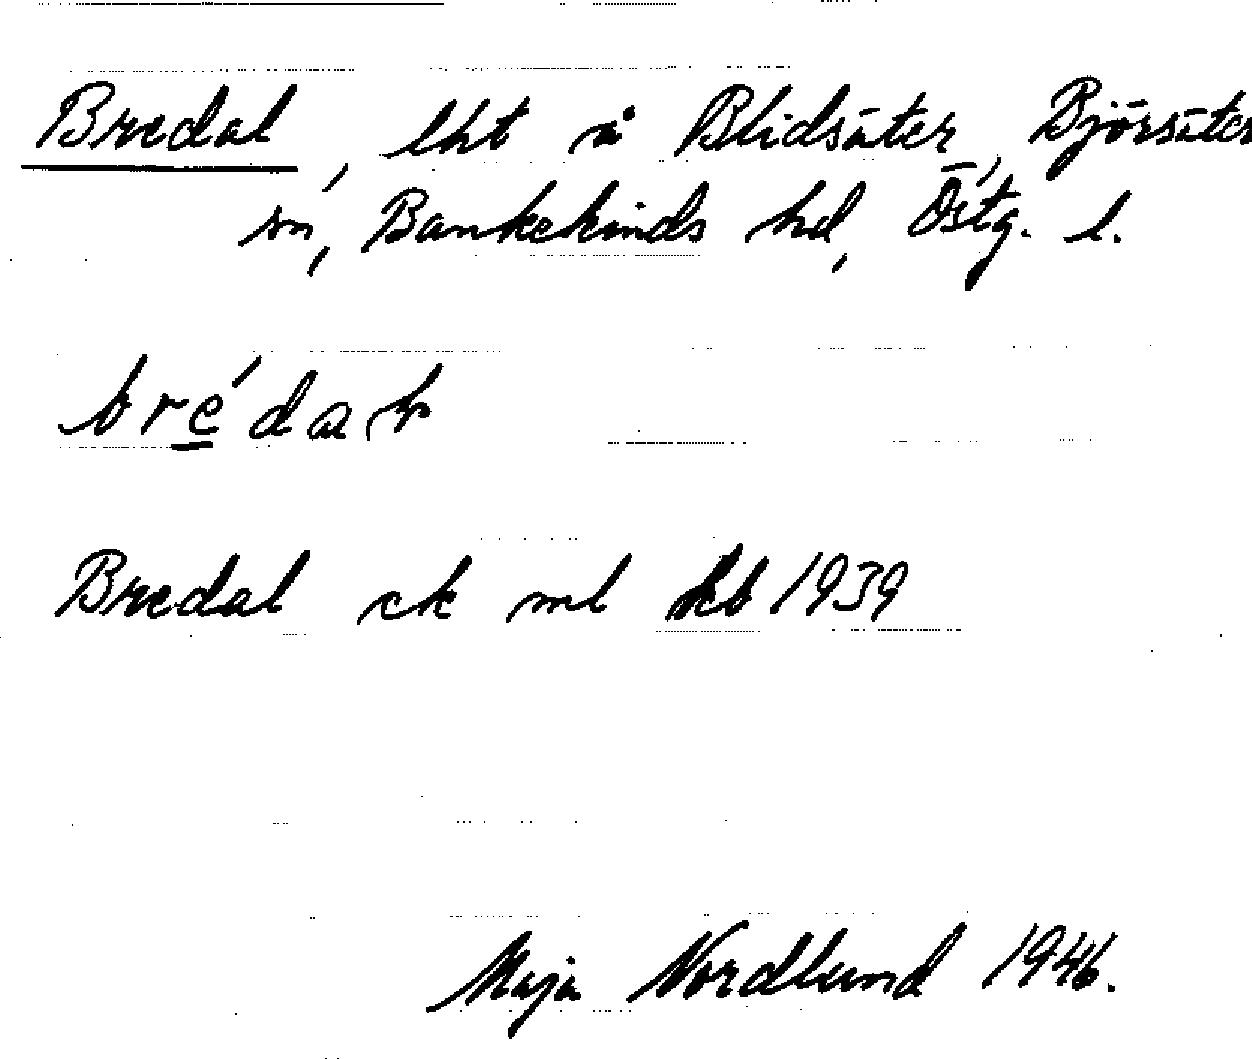 Bredal, lht å Blidsäter, Björsäter
sn, Bankekinds hd, Östg. l.
bre´dab
Bredal ek ml kb 1939
Maja Nordlund 1946.